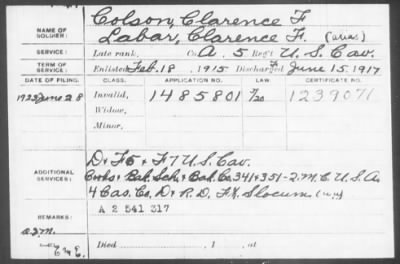 NAME OF SOLDIER: Colson, Clarence F
Labar, Clarence F. (alias)
SERVICE: Late rank, Co. A. 5 Reg't U. S. Cav.
TERM OF SERVICE: Enlisted Feb. 18, 1915 Discharged June 15, 1917
DATE OF FILING. CLASS. APPLICATION NO. LAW. CERTIFICATE NO.
1925 June 28 Invalid, 1485801 7/20 1239071
Widow,
Minor,
ADDITIONAL SERVICES: D + F 5 + F 7 U. S. Cav.
Cooks + Bak. Sch. + Bak. Co 341 + 351 - 2. M. C. U. S. A.
4 Cas. Co. D. + R. D. Ft. Slocum (N.Y.)
A 2 541 317
REMARKS:
Died , 1 , at